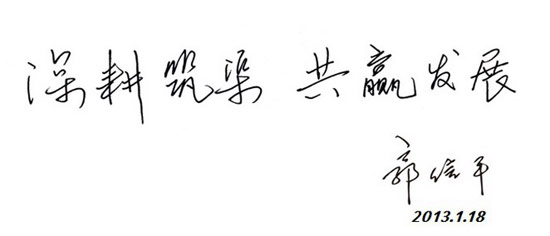 深耕筑渠 共赢发展
郭信平
2013.1.18